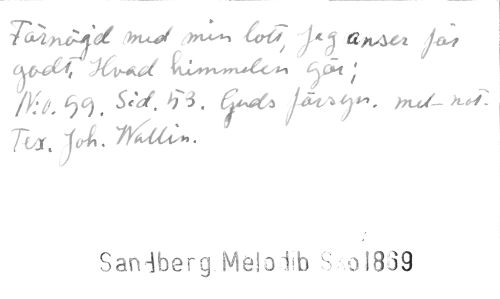 Förnögd med min lott, Jag anser för
godt, Hvad himmelen gör;
N:o. 99. Sid. 53. Guds försyn. mel- not.
Tex. Joh. Wallin.
Sandberg Melodib Sko 1869